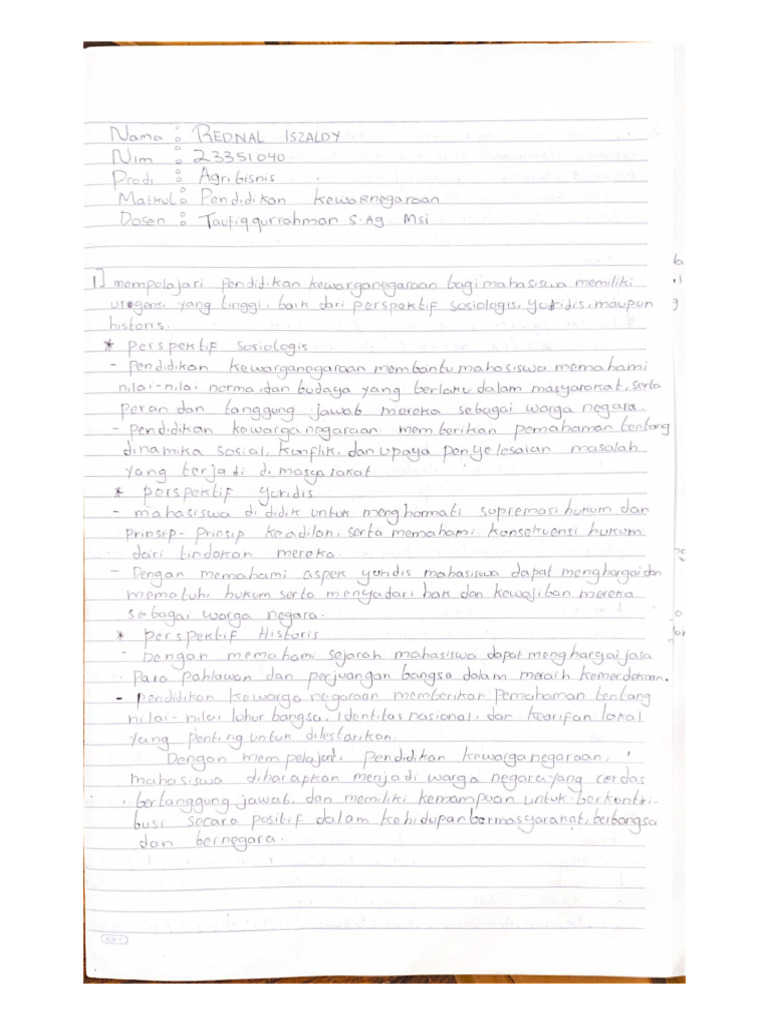 Nama : REDNAL ISZALDY
Nim : 23351040
Prodi : Agribisnis
Matkul : Pendidikan kewarnegaraan
Dosen : Taufiqqurrahman S.Ag Msi
1] mempelajari pendidikan kewarganegaraan bagi mahasiswa memiliki
urgensi yang tinggi, baik dari perspektif sosiologis, yuridis, maupun
historis.
* perspektif sosiologis
- pendidikan kewarganegaraan membantu mahasiswa memahami
nilai-nilai norma, dan budaya yang berlaku dalam masyarakat, serta
peran dan tanggung jawab mereka sebagai warga negara.
- pendidikan kewarganegaraan memberikan pemahaman tentang
dinamika sosial, konflik, dan upaya penyelesaian masalah
yang terjadi di masyarakat
* perspektif yuridis
- mahasiswa di didik untuk menghormati supremasi hukum dan
prinsip-prinsip keadilan, serta memahami konsekuensi hukum
dari tindakan mereka
- Dengan memahami aspek yuridis mahasiswa dapat menghargai dan
mematuhi hukum serta menyadari hak dan kewajiban mereka
sebagai warga negara.
* perspektif Historis
- Dengan memahami sejarah mahasiswa dapat menghargai jasa
para pahlawan dan perjuangan bangsa dalam meraih kemerdekaan.
- pendidikan kewarganegaraan memberikan pemahaman tentang
nilai-nilai luhur bangsa, identitas nasional, dan kearifan lokal
yang penting untuk dilestarikan.
Dengan mempelajari pendidikan kewarganegaraan,
mahasiswa diharapkan menjadi warga negara yang cerdas
bertanggung jawab, dan memiliki kemampuan untuk berkontri-
busi secara positif dalam kehidupan bermasyarakat, berbangsa
dan bernegara.